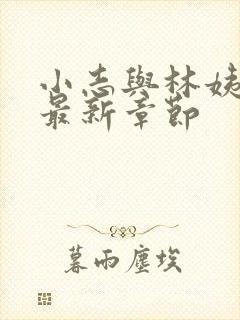 小志與林姨
最新章節
暮雨塵埃